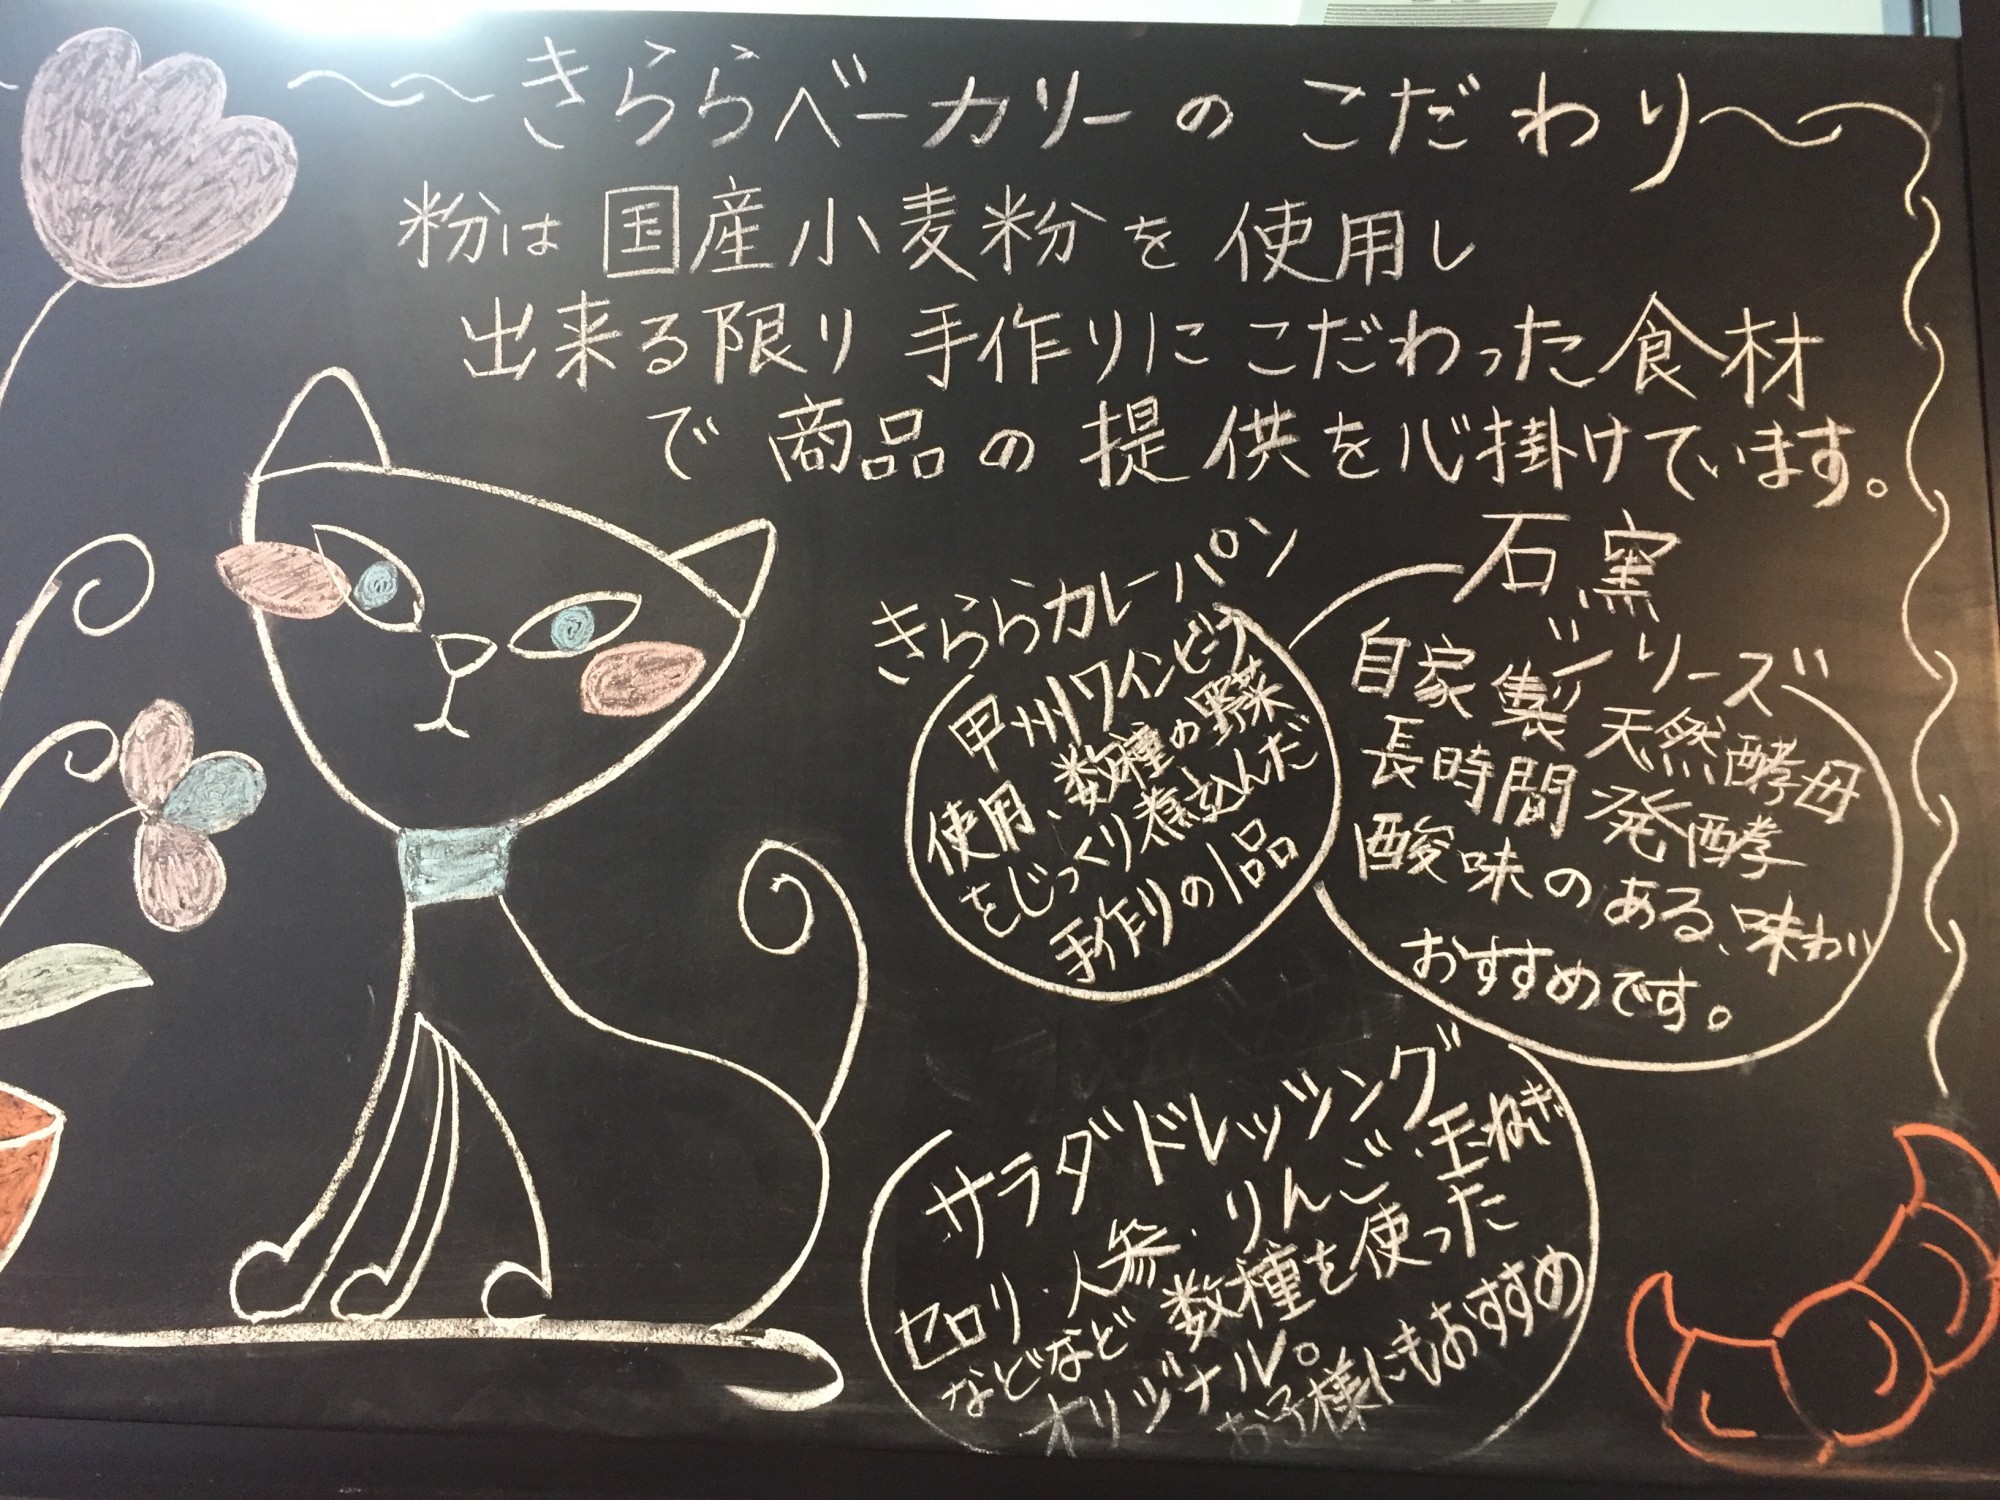 ～～きららベーカリーのこだわり～
粉は国産小麦粉を使用し
出来る限り手作りにこだわった食材
で商品の提供を心掛けています。
きららカレーパン
甲州ワインビーフ
使用、数種の野菜
をじっくり煮込んだ
手作りの1品
石窯
シリーズ
自家製天然酵母
長時間発酵
酸味のある、味わい
おすすめです。
サラダドレッシング
セロリ・人参・りんご・玉ねぎ
などなど数種を使った
オリジナル。
お子様にもおすすめ